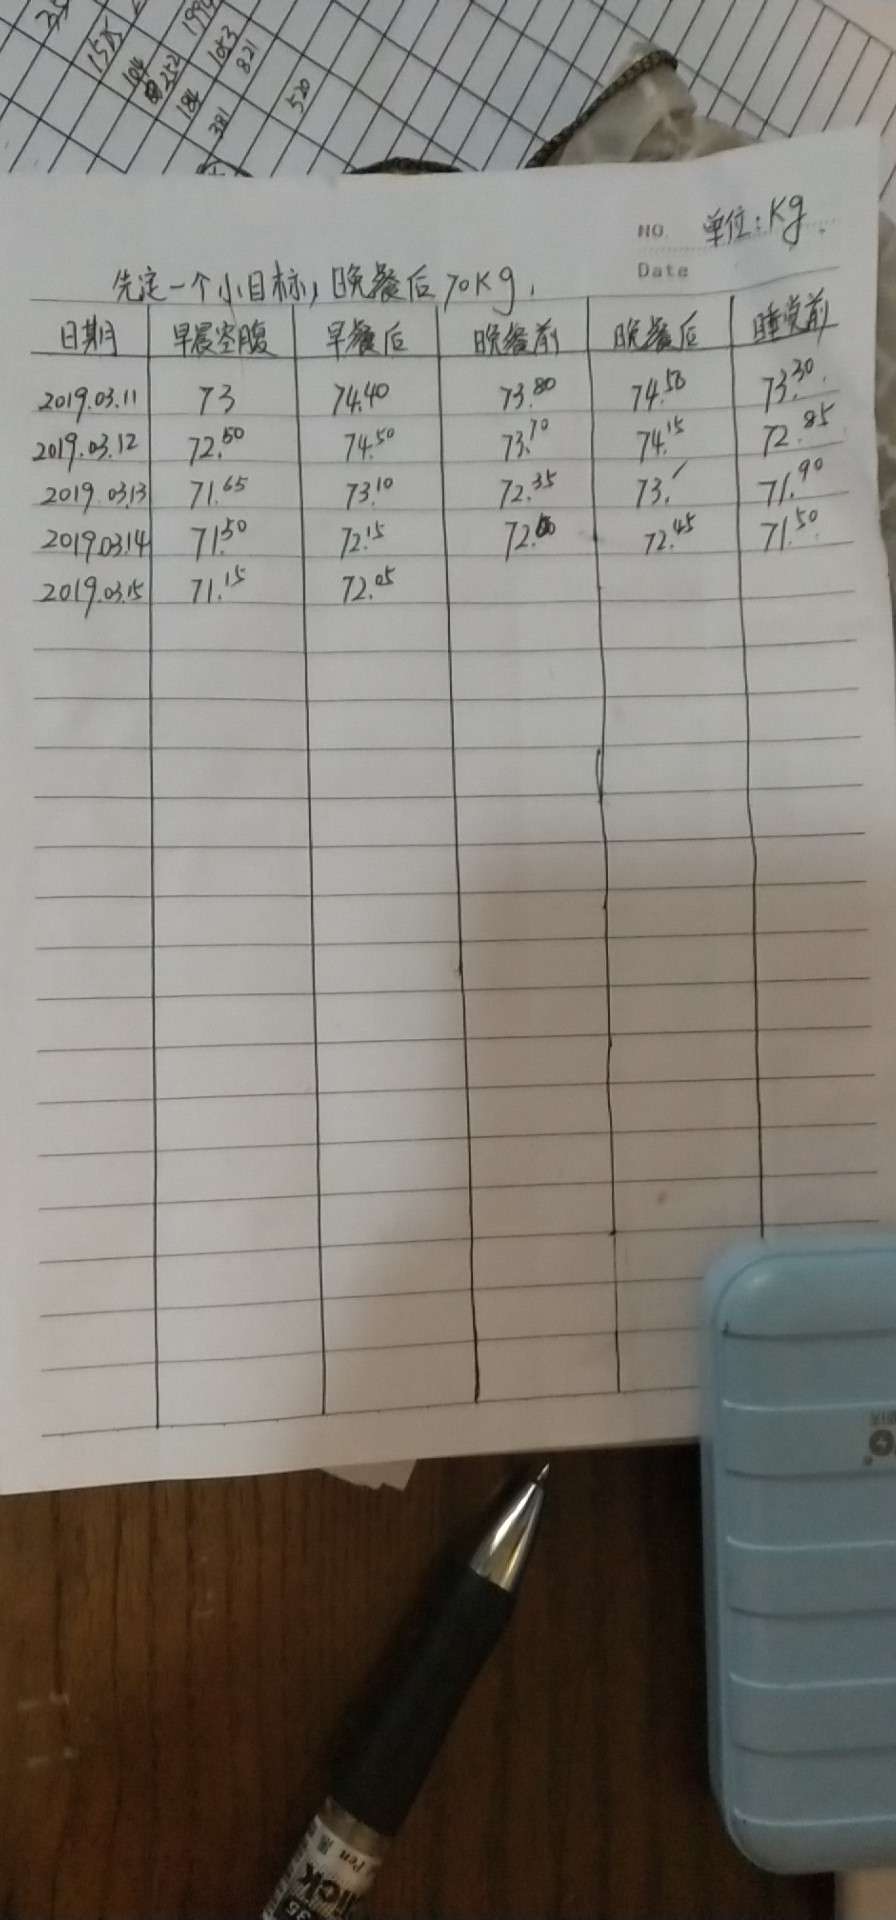 1515
1053
821
184
381
520
NO. 单位:Kg
Date
先定一个小目标,晚餐后70Kg.
日期 早晨空腹 早餐后 晚餐前 晚餐后 睡觉前
2019.03.11 73 74.40 73.80 74.50 73.30
2019.03.12 72.50 74.50 73.70 74.15 72.85
2019.03.13 71.65 73.10 72.35 73. 71.90
2019.03.14 71.50 72.15 72.00 72.45 71.50
2019.03.15 71.15 72.05
Pen